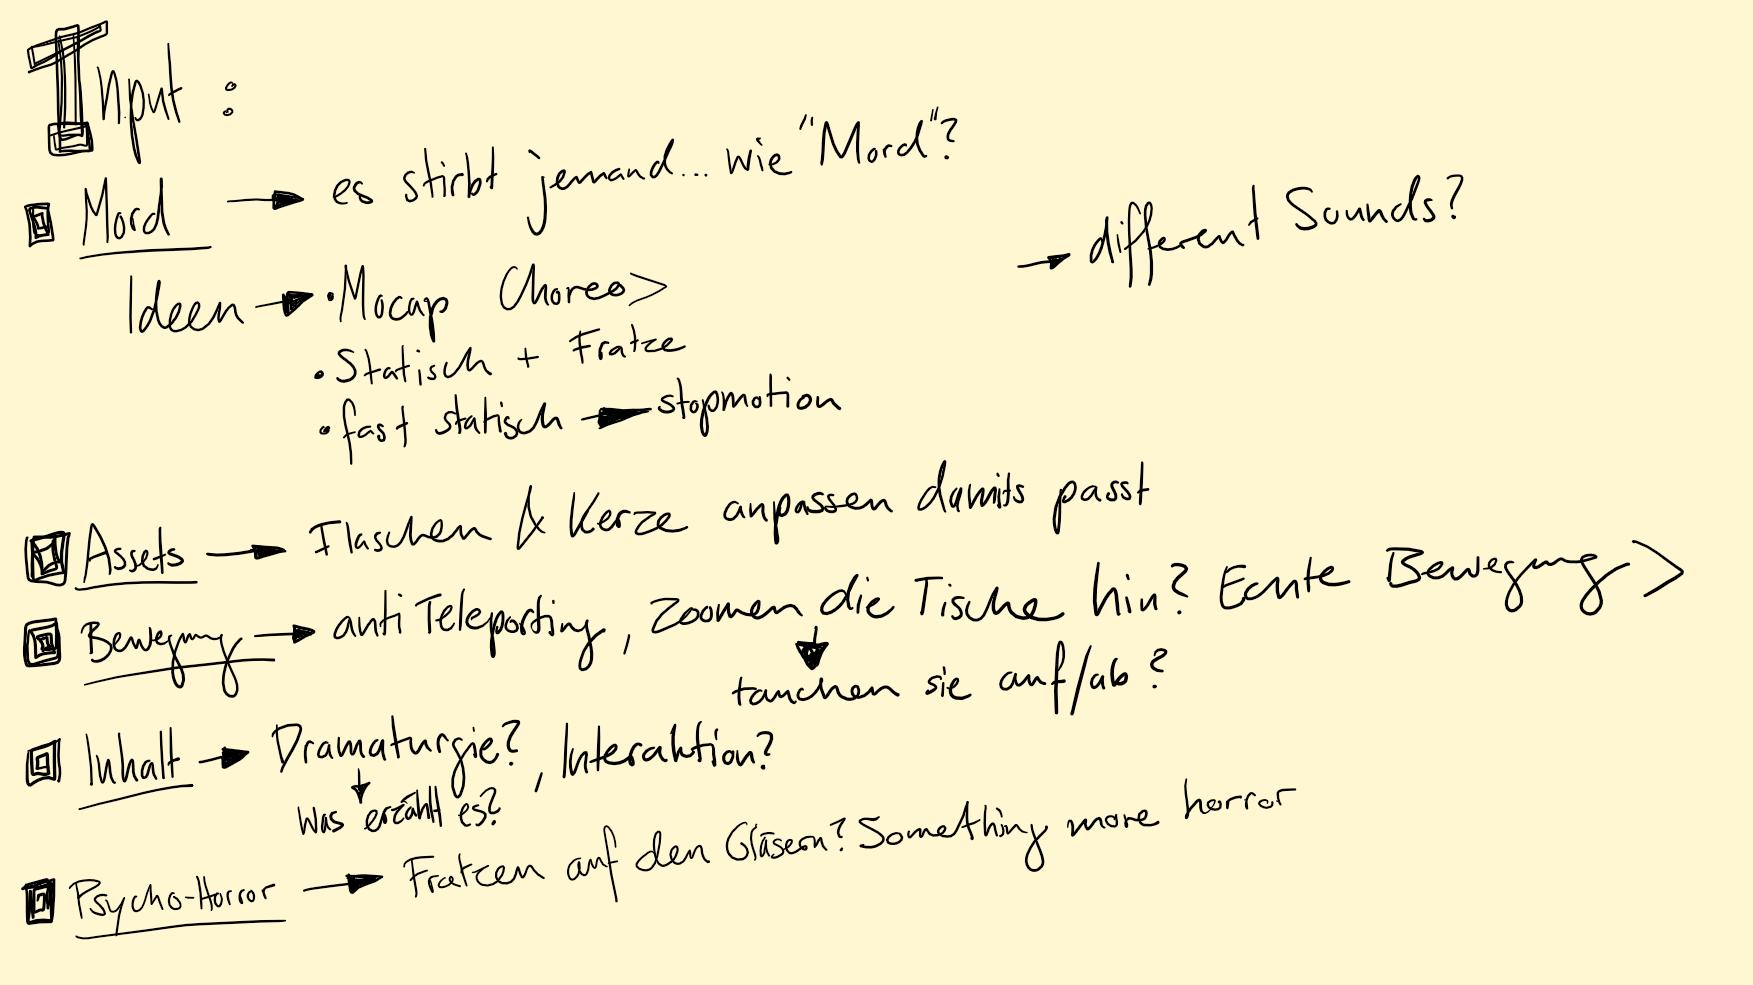 Input :
Mord → es stirbt jemand... wie "Mord"?
→ different Sounds?
Ideen → • Mocap Choreo >
• Statisch + Fratze
• fast statisch → stopmotion
Assets → Flaschen & Kerze anpassen damits passt
Bewegung → anti Teleporting, Zoomen die Tische hin? Echte Bewegung >
tauchen sie auf/ab?
Inhalt → Dramaturgie?, Interaktion?
Was erzählt es?
Psycho-Horror → Fratzen auf den Gläsern? Something more horror